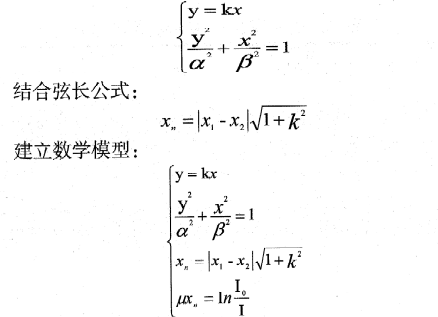 y = kx
y²/α² + x²/β² = 1
结合弦长公式：
xₙ = |x₁ - x₂|√(1 + k²)
建立数学模型：
y = kx
y²/α² + x²/β² = 1
xₙ = |x₁ - x₂|√(1 + k²)
μxₙ = ln I₀/I